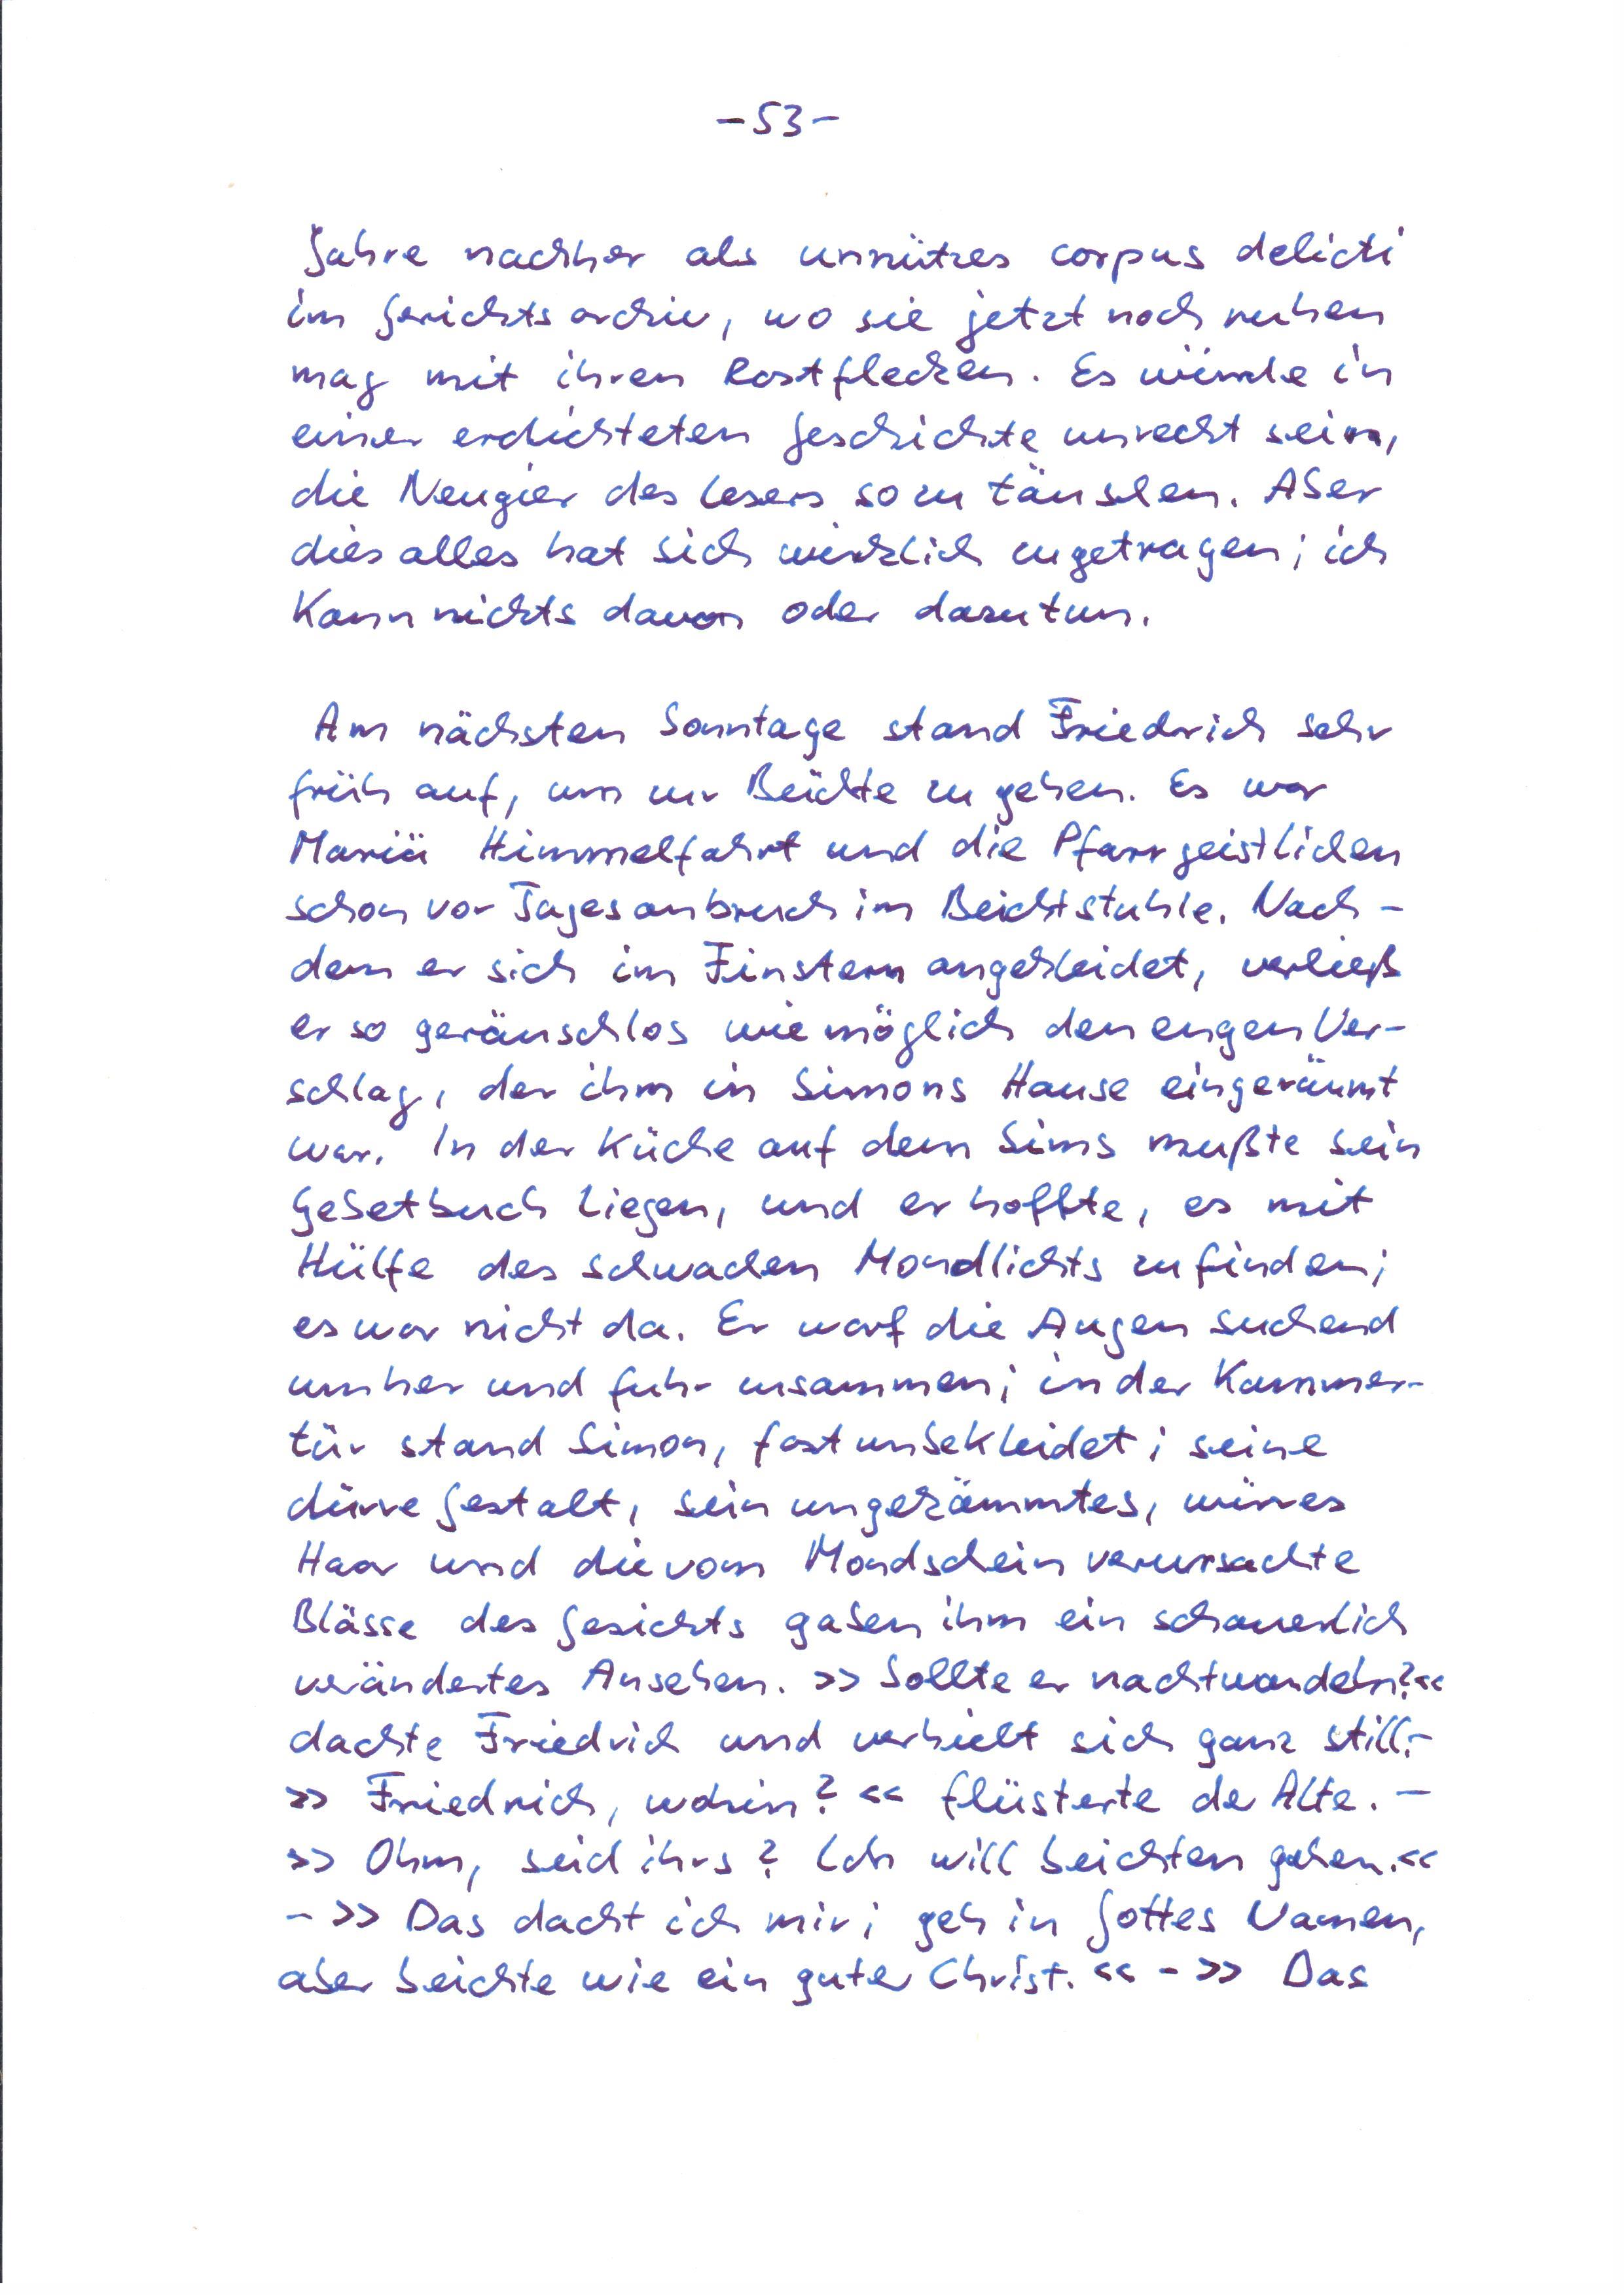 -53-
Jahre nachher als unnützes corpus delicti
im Gerichtsarchiv, wo sie jetzt noch ruhen
mag mit ihren Rostflecken. Es würde in
einer erdichteten Geschichte unrecht sein,
die Neugier des Lesers so zu täuschen. Aber
dies alles hat sich wirklich zugetragen; ich
kann nichts davon oder dazutun.
Am nächsten Sonntage stand Friedrich sehr
früh auf, um zur Beichte zu gehen. Es war
Mariä Himmelfahrt und die Pfarrgeistlichen
schon vor Tagesanbruch im Beichtstuhle. Nach-
dem er sich im Finstern angekleidet, verließ
er so geräuschlos wie möglich den engen Ver-
schlag, der ihm in Simons Hause eingeräumt
war. In der Küche auf dem Sims mußte sein
Gebetbuch liegen, und er hoffte, es mit
Hülfe des schwachen Mondlichts zu finden;
es war nicht da. Er warf die Augen suchend
umher und fuhr zusammen; in der Kammer-
tür stand Simon, fast unbekleidet; seine
dürre Gestalt, sein ungekämmtes, wirres
Haar und die vom Mondschein verursachte
Blässe des Gesichts gaben ihm ein schauerlich
verändertes Ansehen. >> Sollte er nachtwandeln?<<
dachte Friedrich und verhielt sich ganz still.-
>> Friedrich, wohin? << flüsterte der Alte. -
>> Ohm, seid ihrs? Ich will beichten gehen.<<
- >> Das dacht ich mir; geh in Gottes Namen,
aber beichte wie ein guter Christ. << - >> Das